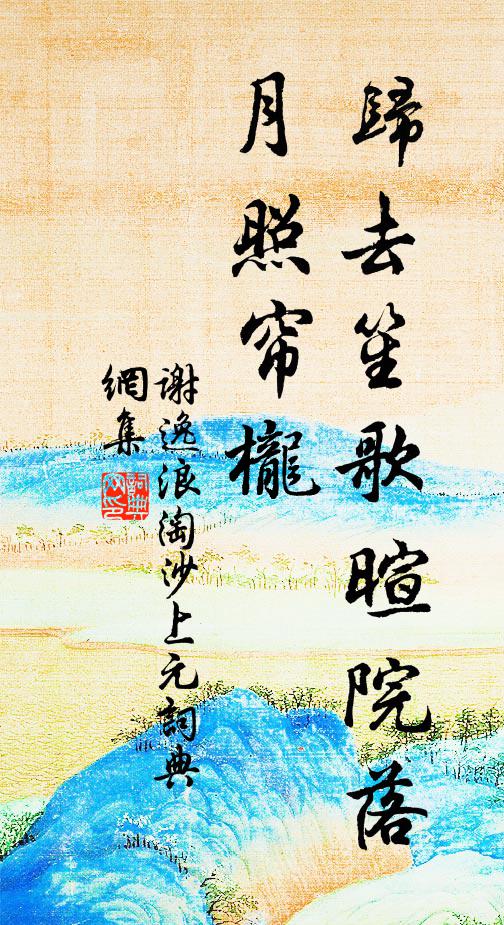 歸去笙歌暄院落
月照帘櫳
谢逸浪淘沙上元詞典
網集
詞典